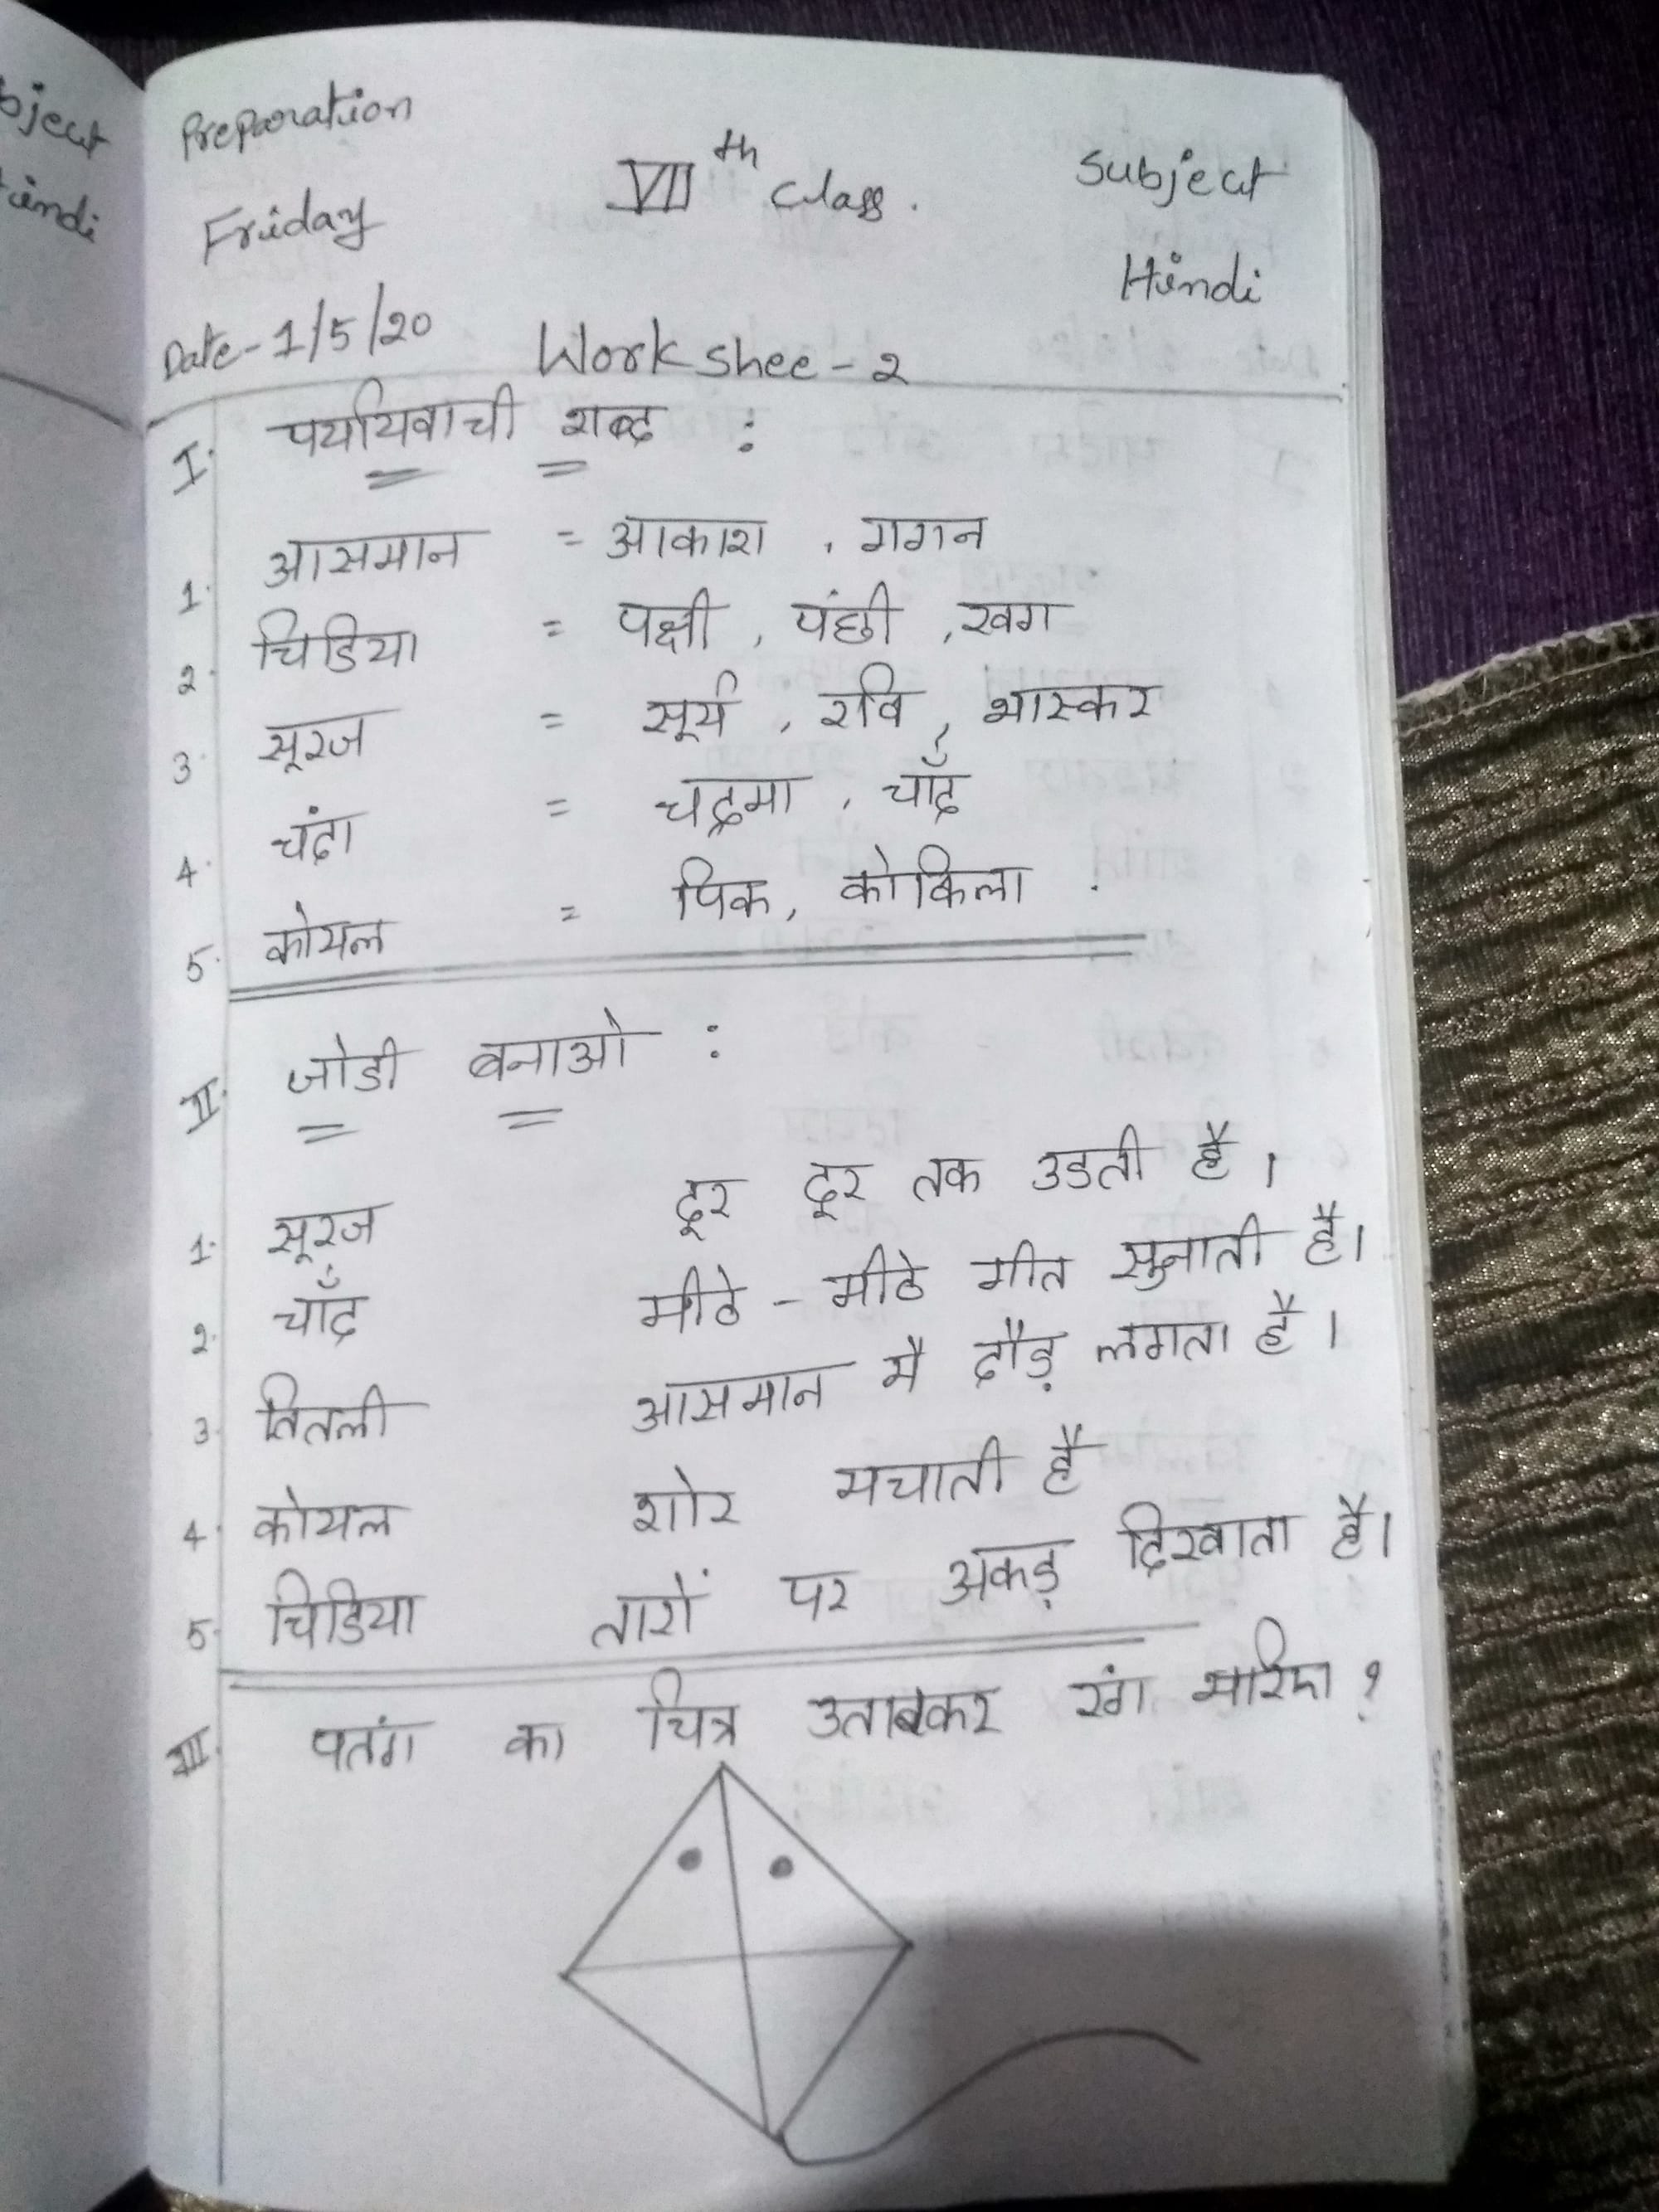 bject
Hindi
Preparation
VII th Class.
Subject
Friday
Hindi
Date-1/5/20
Work shee-2
I. पर्यायवाची शब्द :
1. आसमान = आकाश , गगन
2. चिडिया = पक्षी , पंछी , खग
3. सूरज = सूर्य , रवि , भास्कर
4. चंदा = चद्रमा , चाँद
5. कोयल = पिक, कोकिला .
II. जोडी बनाओ :
1. सूरज दूर दूर तक उडती है ।
2. चाँद मीठे - मीठे गीत सुनाती है।
3. तितली आसमान मै दौड़ लगता है ।
4. कोयल शोर मचाती है
5. चिडिया तारों पर अकड़ दिखाता है।
III. पतंग का चित्र उतारकर रंग भरिए ?